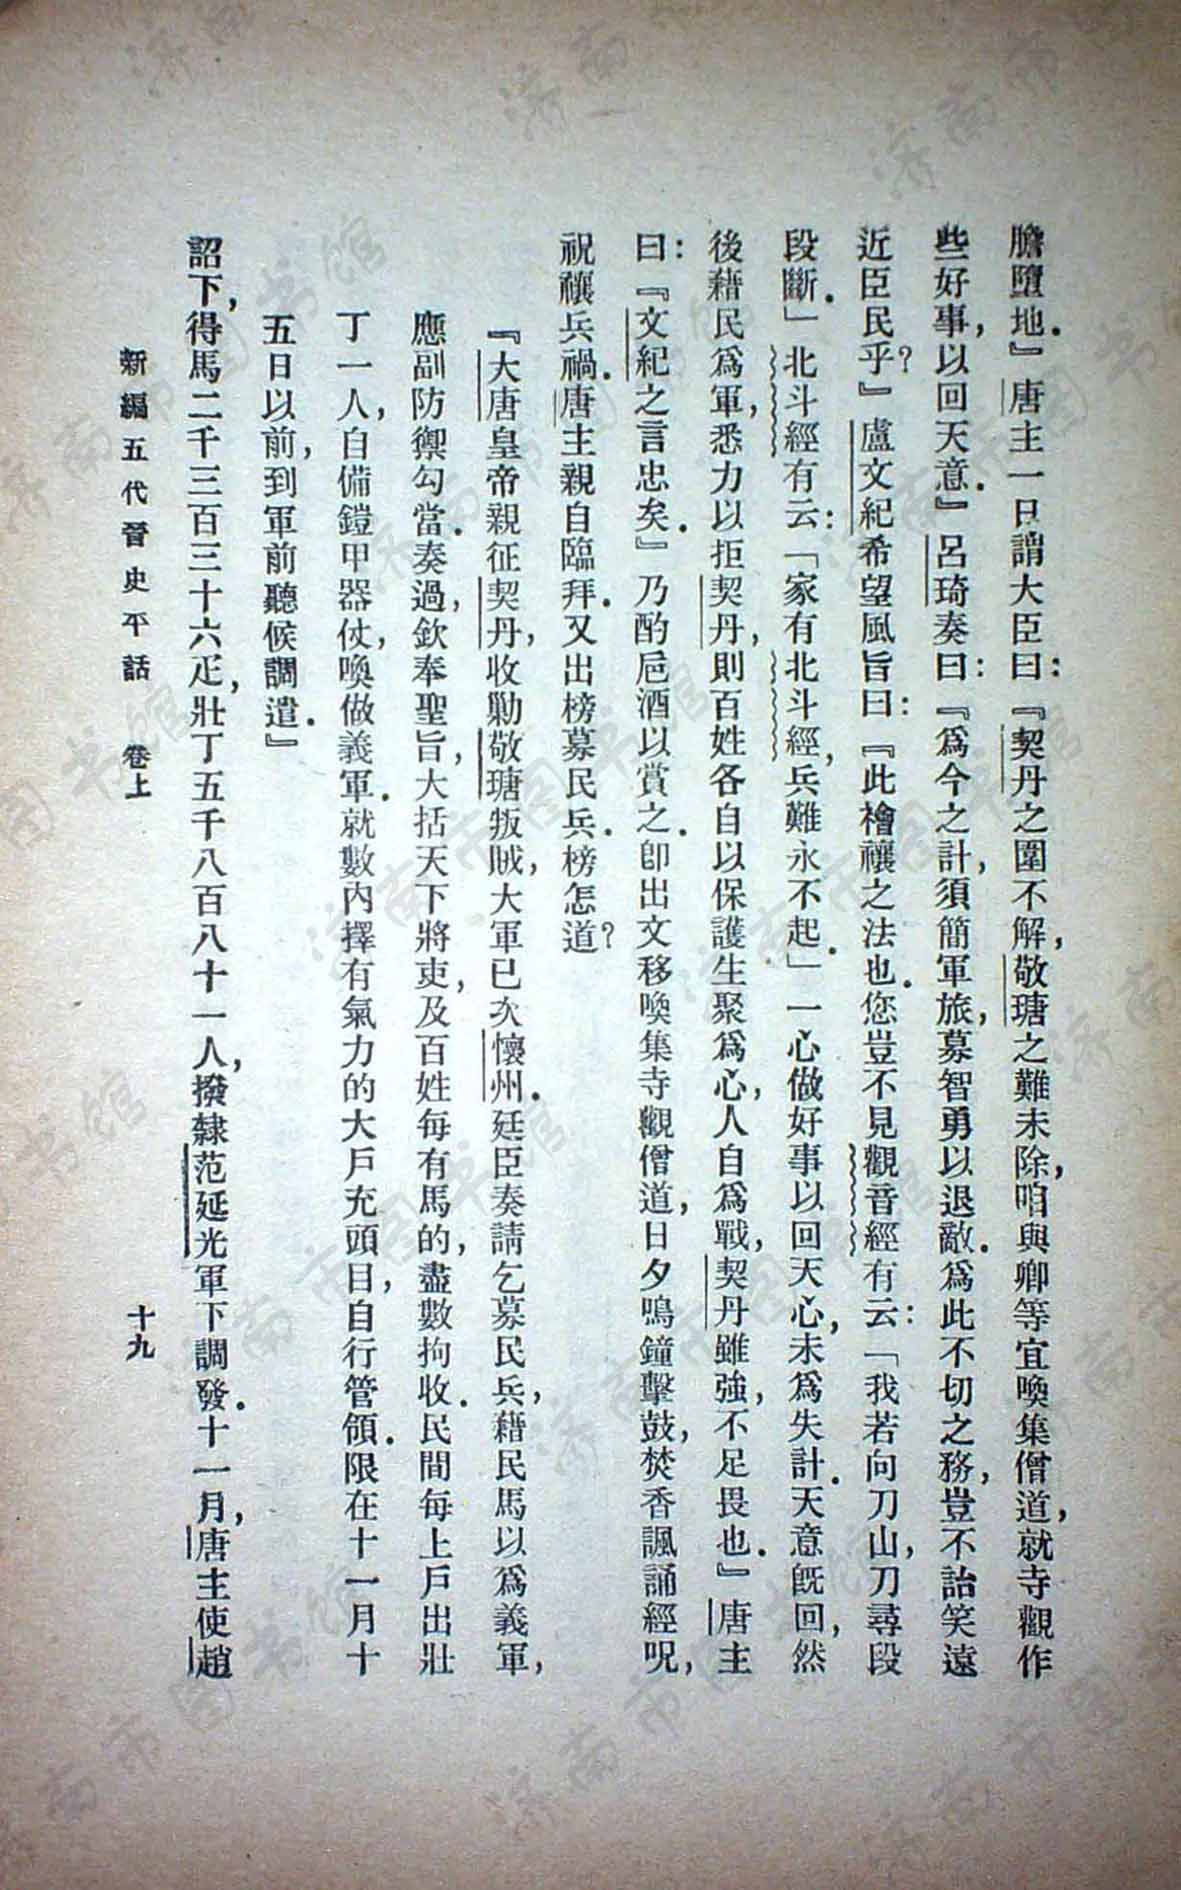 膽墮地．』唐主一日謂大臣曰：『契丹之圍不解，敬瑭之難未除，咱與卿等宜喚集僧道，就寺觀作
些好事，以回天意．』呂琦奏曰：『爲今之計，須簡軍旅，募智勇以退敵．爲此不切之務，豈不詒笑遠
近臣民乎？』盧文紀希望風旨曰：『此禬禳之法也．您豈不見觀音經有云：「我若向刀山，刀尋段
段斷．」北斗經有云：「家有北斗經，兵難永不起．」一心做好事以回天心，未爲失計．天意旣回，然
後藉民爲軍，悉力以拒契丹，則百姓各自以保護生聚爲心，人自爲戰，契丹雖強，不足畏也．』唐主
曰：『文紀之言忠矣．』乃酌巵酒以賞之．卽出文移喚集寺觀僧道，日夕鳴鐘擊鼓，焚香諷誦經呪，
祝禳兵禍．唐主親自臨拜．又出榜募民兵．榜怎道？
『大唐皇帝親征契丹，收勦敬瑭叛賊，大軍已次懷州．廷臣奏請乞募民兵，藉民馬以爲義軍，
應副防禦勾當．奏過，欽奉聖旨，大括天下將吏，及百姓每有馬的，盡數拘收．民間每上戶出壯
丁一人，自備鎧甲器仗，喚做義軍．就數內擇有氣力的大戶充頭目，自行管領．限在十一月十
五日以前，到軍前聽候調遣．』
詔下，得馬二千三百三十六疋，壯丁五千八百八十一人，撥隸范延光軍下調發．十一月，唐主使趙
新編五代晉史平話　卷上　十九
济南市图书馆